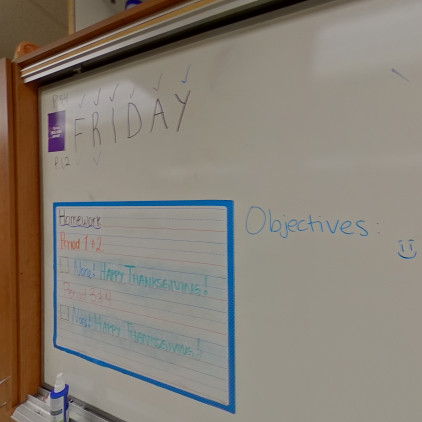 FRIDAY
P1&2
Homework
Period 1&2
None! HAPPY THANKSGIVING!
Period 3&4
None! HAPPY THANKSGIVING!
Objectives: